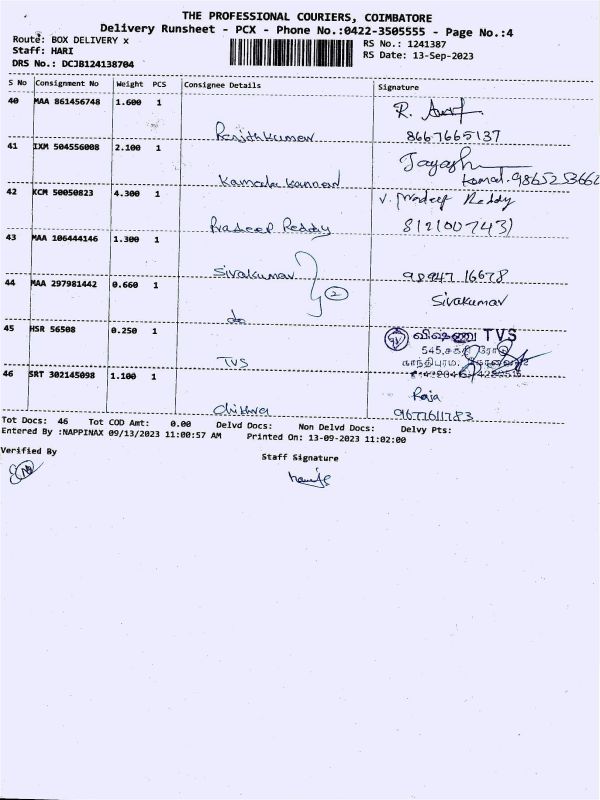 THE PROFESSIONAL COURIERS, COIMBATORE
Delivery Runsheet - PCX - Phone No.:0422-3505555 - Page No.:4
Route: BOX DELIVERY x
RS No.: 1241387
Staff: HARI
RS Date: 13-Sep-2023
DRS No.: DCJB124138704
S No Consignment No Weight PCS Consignee Details Signature
40 MAA 861456748 1.600 1
R.
Ranjithkumar 8667665137
41 IXM 504556008 2.100 1
Kamala kannan
Kamal. 9865253662
42 KCM 50050823 4.300 1
V. Pradeep Reddy
Pradeep Reddy
43 MAA 106444146 1.300 1
Sivakumar 98947 16678
44 MAA 297981442 0.660 1
2
Sivakumar
do
45 HSR 56508 0.250 1
விஷ்ணு TVS
545, சக்தி ரோடு
காந்திபுரம்,
TVS
46 SRT 302145098 1.100 1
Raja
Chithra 9677611783
Tot Docs: 46 Tot COD Amt: 0.00 Delvd Docs: Non Delvd Docs: Delvy Pts:
Entered By :NAPPINAX 09/13/2023 11:00:57 AM Printed On: 13-09-2023 11:02:00
Verified By
Staff Signature